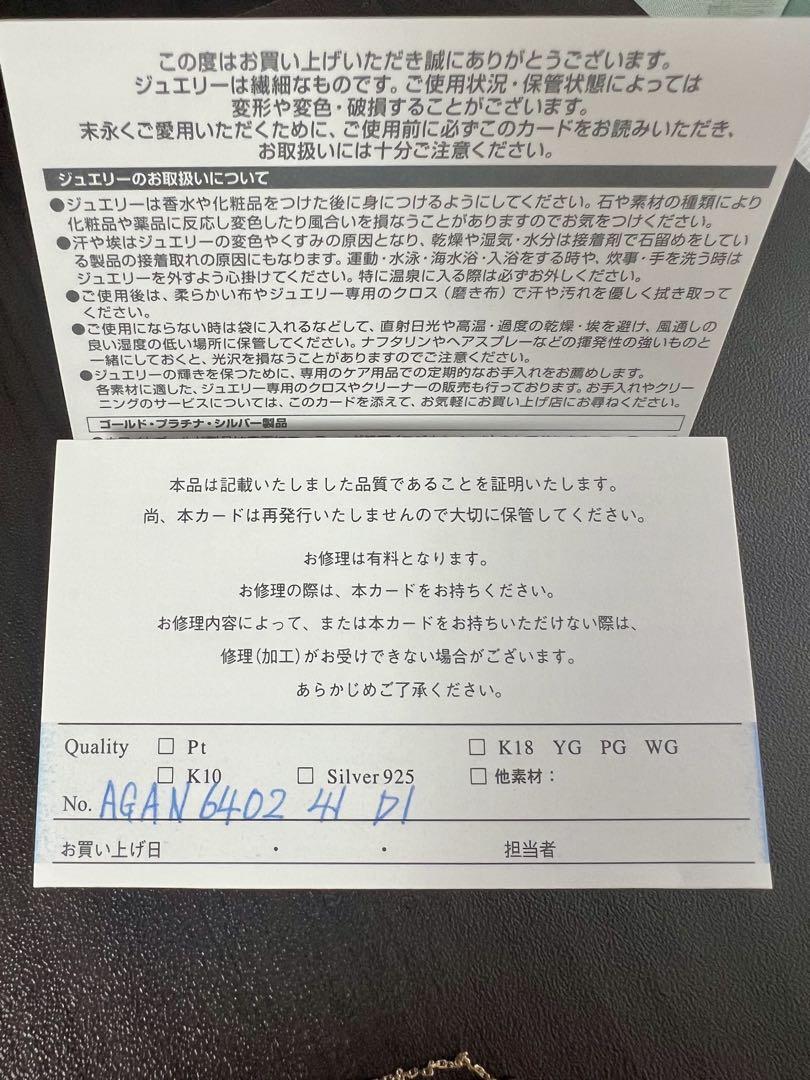 この度はお買い上げいただき誠にありがとうございます。
ジュエリーは繊細なものです。ご使用状況・保管状態によっては
変形や変色・破損することがございます。
末永くご愛用いただくために、ご使用前に必ずこのカードをお読みいただき、
お取扱いには十分ご注意ください。
ジュエリーのお取扱いについて
●ジュエリーは香水や化粧品をつけた後に身につけるようにしてください。石や素材の種類により
化粧品や薬品に反応し変色したり風合いを損なうことがありますのでお気をつけください。
●汗や埃はジュエリーの変色やくすみの原因となり、乾燥や湿気・水分は接着剤で石留めをしてい
る製品の接着取れの原因にもなります。運動・水泳・海水浴・入浴をする時や、炊事・手を洗う時は
ジュエリーを外すよう心掛けてください。特に温泉に入る際は必ずお外しください。
●ご使用後は、柔らかい布やジュエリー専用のクロス（磨き布）で汗や汚れを優しく拭き取って
ください。
●ご使用にならない時は袋に入れるなどして、直射日光や高温・過度の乾燥・埃を避け、風通しの
良い湿度の低い場所に保管してください。ナフタリンやヘアスプレーなどの揮発性の強いものと
一緒にしておくと、光沢を損なうことがありますのでご注意ください。
●ジュエリーの輝きを保つために、専用のケア用品での定期的なお手入れをお薦めします。
各素材に適した、ジュエリー専用のクロスやクリーナーの販売も行っております。お手入れやクリー
ニングのサービスについては、このカードを添えて、お気軽にお買い上げ店にお尋ねください。
ゴールド・プラチナ・シルバー製品
本品は記載いたしました品質であることを証明いたします。
尚、本カードは再発行いたしませんので大切に保管してください。
お修理は有料となります。
お修理の際は、本カードをお持ちください。
お修理内容によって、または本カードをお持ちいただけない際は、
修理(加工)がお受けできない場合がございます。
あらかじめご了承ください。
Quality □ Pt □ K18 YG PG WG
□ K10 □ Silver925 □ 他素材：
No. AGAN6402 41 D1
お買い上げ日 ・ ・ 担当者